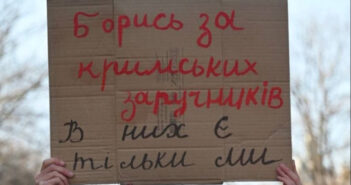 Борись за
кримських
заручників
В них є
тільки ми